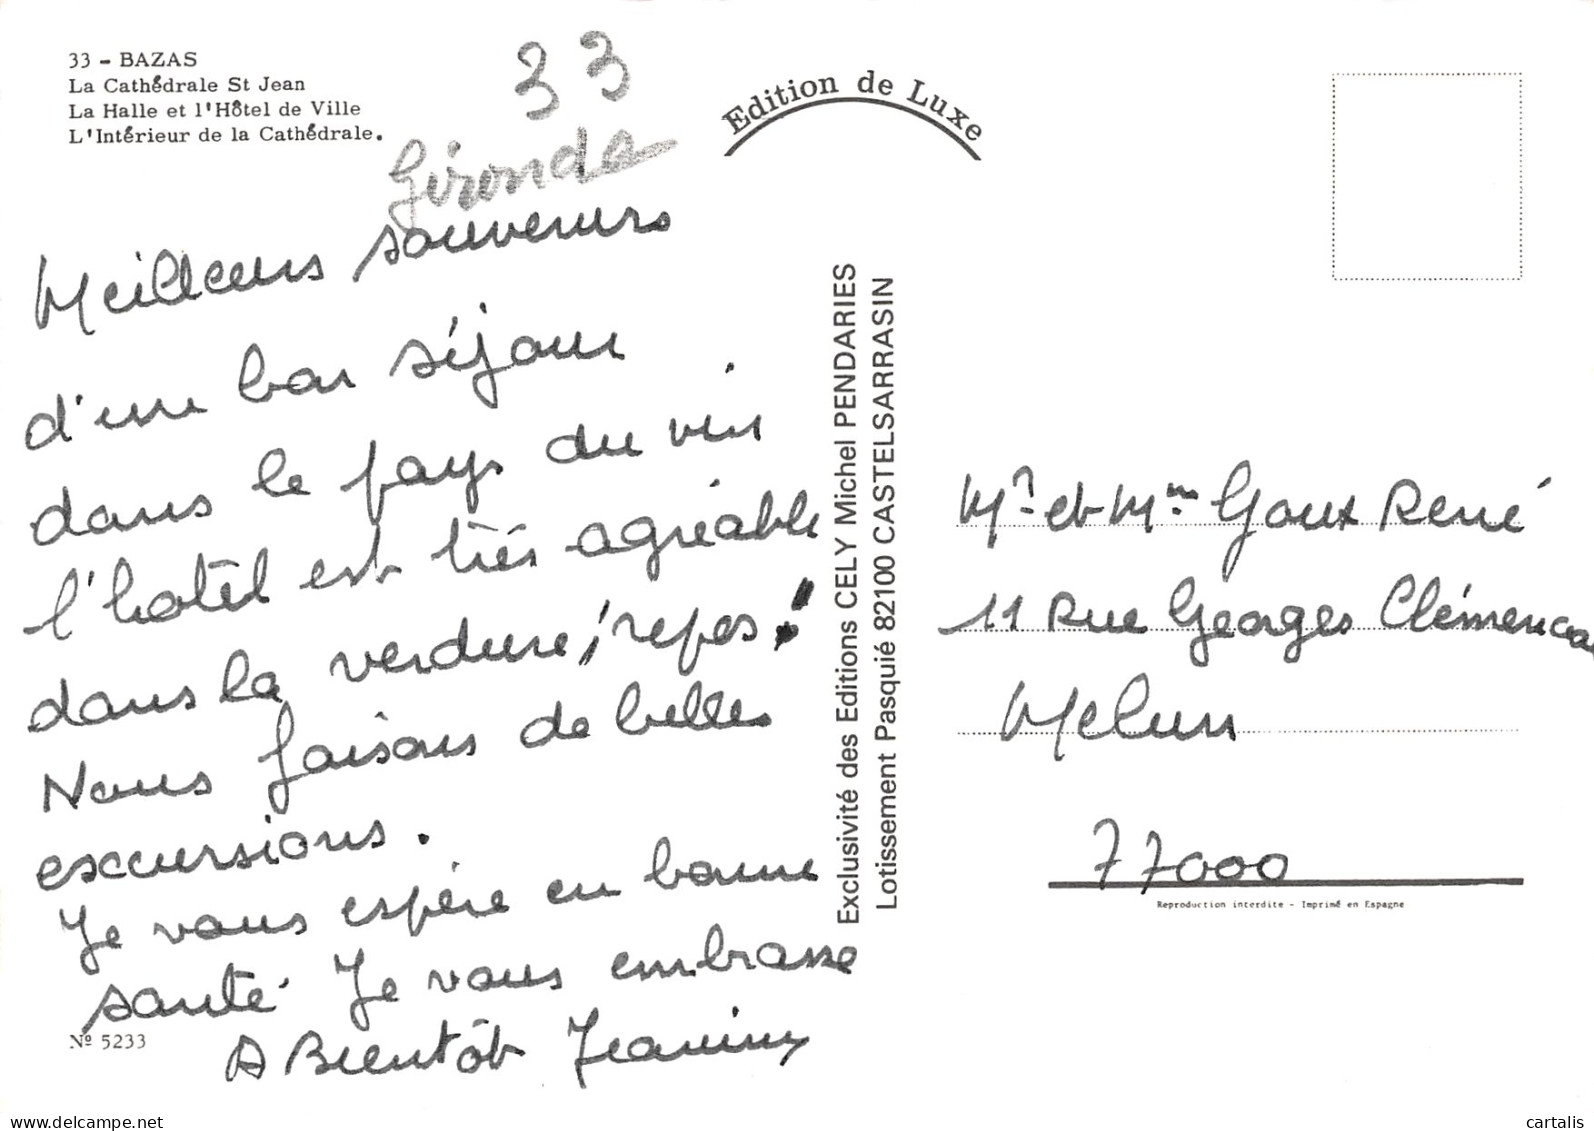 33 - BAZAS
La Cathédrale St Jean
La Halle et l'Hôtel de Ville
L'Intérieur de la Cathédrale.
33
Gironde
Meilleurs souvenirs
d'un bon séjour
dans le pays du vin
l'hotel est très agréable
dans la verdure, repos !
Nous faisons de belles
excursions.
Je vous espère en bonne
santé. Je vous embrasse
A Bientôt Jeanine
Nº 5233
Edition de Luxe
Exclusivité des Editions CELY Michel PENDARIES
Lotissement Pasquié 82100 CASTELSARRASIN
Mr et Mme Goux René
11 Rue Georges Clémenceau
Melun
77000
Reproduction interdite - Imprimé en Espagne
cartalis
www.delcampe.net